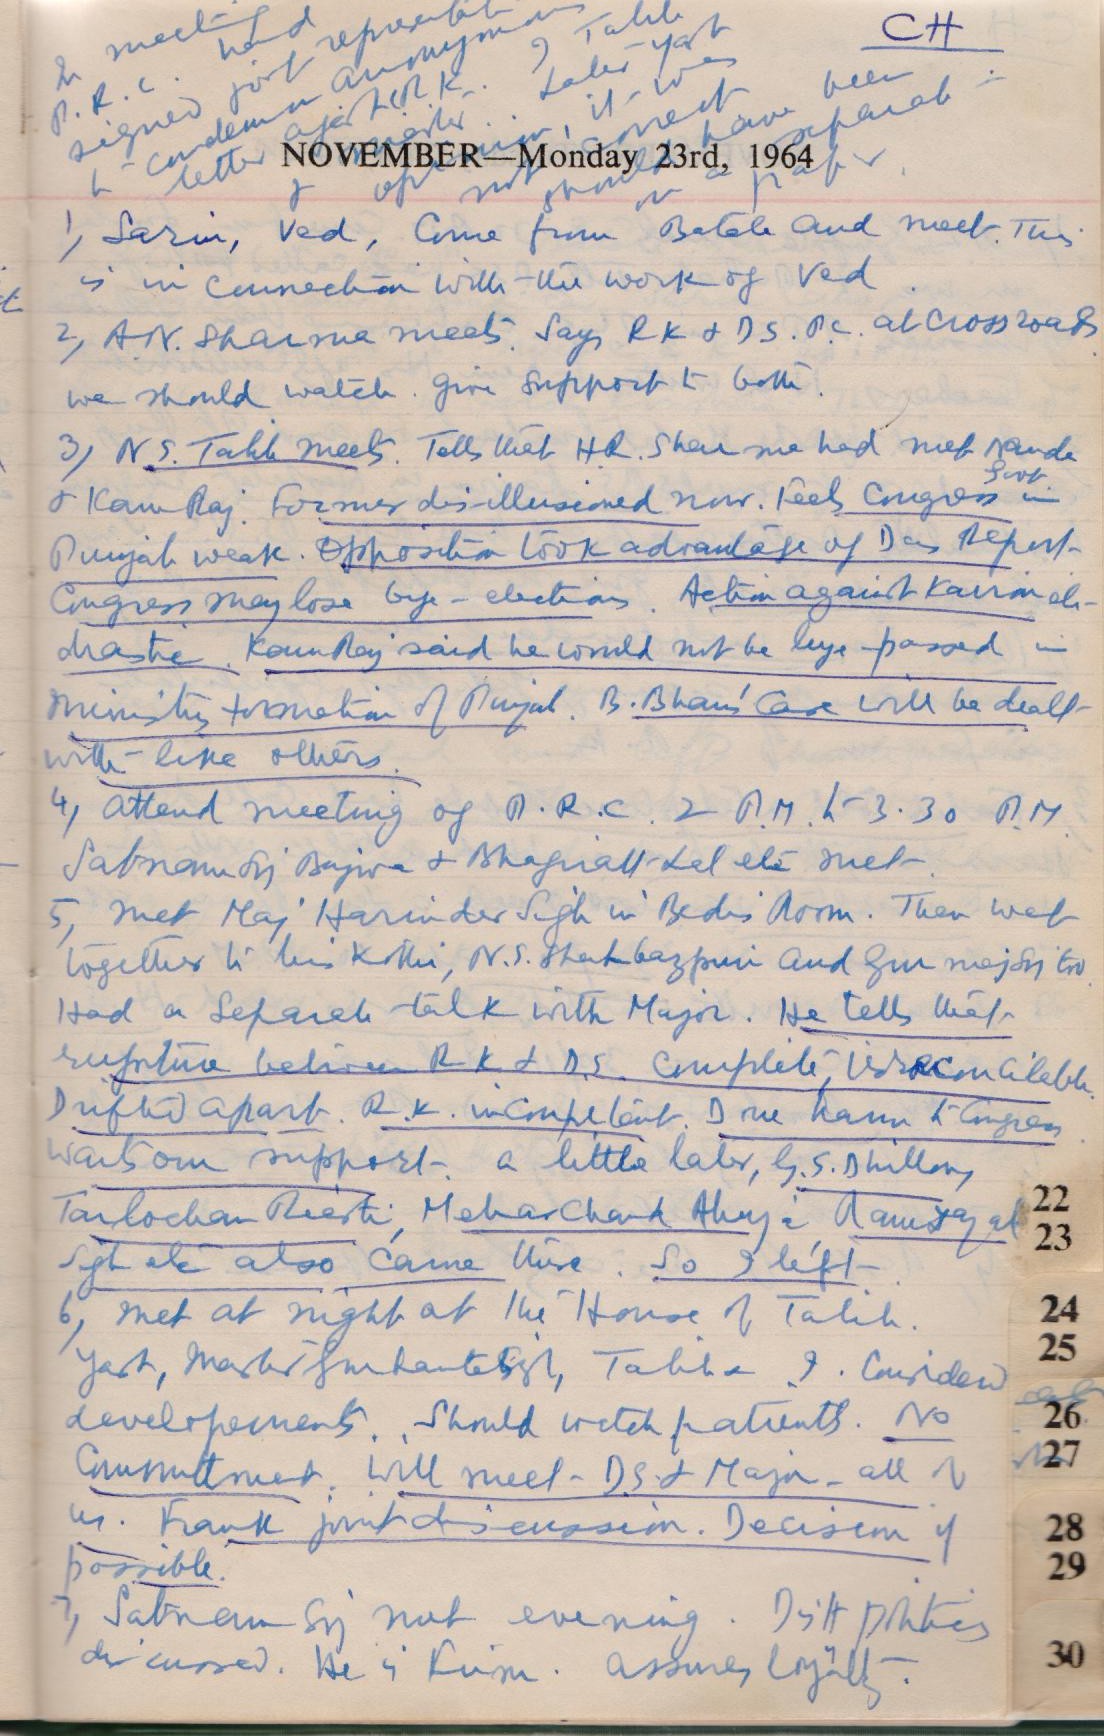 CH
In meeting
P.R.C. had
signed joint representation
to condemn anonymous
letter against R.K. I, Talib
& master. Later Yash
opinion, it was
not correct
should have been
on a separate
paper.
NOVEMBER—Monday 23rd, 1964
1, Sarin, Ved, Come from Batala and meet. This
is in connection with the work of Ved.
2, A.N. Sharma meets. Says RK & D.S. P.C. at Crossroads
we should watch. give support to both.
3, N.S. Talib meets. Tells that H.R. Sharma had met Nanda
& Kam Raj. Former disillusioned now. Feels Congress Govt. in
Punjab weak. Opposition took advantage of Das Report
Congress may lose bye-elections. Action against Kairon etc
drastic. Kam Raj said he would not be bye-passed in
Ministry formation of Punjab. B. Bhan's Case will be dealt
with like others.
4, attend meeting of P.R.C. 2 P.M. to 3.30 P.M.
Satnam Sg Bajwa & Bhagirath Lal etc met.
5, met Maj Harinder Sigh in Bedi's Room. Then went
together to his Kothi, N.S. Shahbazpuri and Gurmej Sg too
Had a Separate talk with Major. He tells that
rupture between R K & D.S. Complete, irreconcilable.
Drifted apart. R.K. incompetent. Done harm to Congress.
Wants our support. a little later, G.S. Dhillon,
Tarlochan Riasti, Mehar Chand Ahuja Ramdayal
Sigh etc also Came there. So I left.
6, met at night at the House of Talib.
Yash, Master Gurbanta Sigh, Talib & I. Considered
developements. Should watch patiently. No
Committment. Will meet D.S. & Major - all of
us. Frank joint discussion. Decision if
possible.
7, Satnam Sg met evening. Distt politics
discussed. He is Firm. assures loyalty.
22
23
24
25
26
27
28
29
30